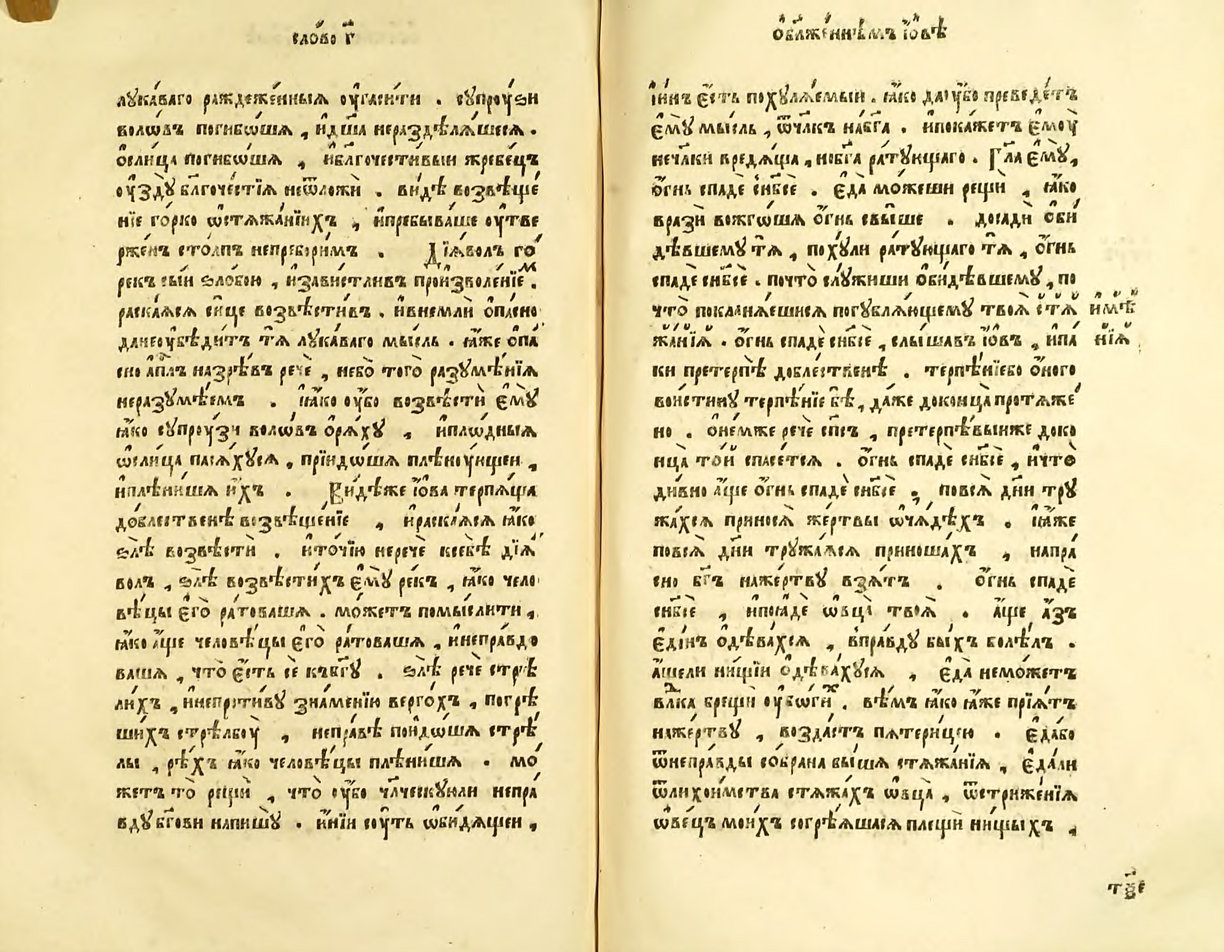 сло́во г҃
лꙋка́ваго ражде́же́нныѧ ᲂу҆гаси́ти . сꙋпроу́зи
волѡ́въ поги́бѡшѧ , и҆дш҃а нераздѣлѧ́шесѧ .
ѻ҆сли́ца поги́бѡшѧ , и҆бл҃гочести́выи жребе́цъ
ᲂу҆здꙋ̀ бл҃гоче́стїѧ неѿложѝ . ви́дѣ возвѣще́
нїе го́рко ѡ҆стѧжа́нїихъ , и҆пребыва́ше ᲂу҆тве
рже́нъ сто́лпъ непребори́мъ . Дїѧ́волъ го́
рекъ сы́и ѕло́бою , и҆зави́стливъ произволе́нїемъ .
раска́ѧсѧ си́це возвѣсти́въ . и҆внемлѝ ѻ҆па́сно
данеᲂу҆бѣди́тъ тѧ̀ лꙋка́ваго мы́сль . ꙗ҆́же ѻ҆па́
сно а҆пл҃ъ назрѣ́въ речѐ , не́бо того̀ разꙋмѣ́нїѧ
неразꙋмѣ́емъ . ꙗ҆́ко ᲂу҆́бо возвѣстѝ є҆мꙋ̀
ꙗ҆́ко сꙋпроу́зи волѡ́въ ѻ҆рѧ́хꙋ , и҆плѡ́дныѧ
ѡ҆сли́ца пасѧ́хꙋсѧ , прїидо́шѧ плѣноу́ющеи ,
и҆плѣни́шѧ и҆́хъ . Ви́дѣже і҆́ова терпѧ́ща
до́блественѣ возвѣще́нїе , и҆раска́ѧсѧ ꙗ҆́ко
ѕлѣ̀ возвѣстѝ . и҆то́чїю неречѐ ксебѣ̀ дїѧ́
волъ , ѕлѣ̀ возвѣсти́хъ є҆мꙋ̀ рекъ , ꙗ҆́ко чело
вѣ́цы є҆го̀ ра́товашѧ . мо́жетъ помы́слити ,
ꙗ҆́ко а҆́ще человѣ́цы є҆го̀ ра́товашѧ , и҆непра́вдо
вашѧ , что̀ є҆́сть сѐ къбг҃ꙋ . ѕлѣ̀ речѐ стрѣ
лѝхъ , и҆непроти́вꙋ зна́менїю верго́хъ , погрѣ
ши́хъ стрѣ́лбоу , непра́вѣ поидо́шѧ стрѣ́
лы , рѣ́хъ ꙗ҆́ко человѣ́цы плѣни́шѧ . мо́
жетъ то̀ рещѝ , что̀ ᲂу҆́бо чл҃ческꙋюли непра́
вдꙋ бг҃ови напишꙋ̀ . и҆ні́и соу́ть ѡ҆би́дѧщеи ,
ѻ҆бл҃же́ннѣмъ і҆́овѣ
і҆ні́нъ є҆́сть похꙋлѧ́емыи . ꙗ҆́ко даᲂу҆́бо преведе́тъ
є҆мꙋ̀ мы́сль , ѿчл҃къ набг҃а . и҆пока́жетъ є҆моу̀
нечл҃ки вредѧ́ща , нобг҃а ра́тꙋющаго . Гл҃а є҆мꙋ̀ ,
ѻ҆́гнь спадѐ снб҃сѐ . є҆да̀ мо́жеши рещѝ , ꙗ҆́ко
вразѝ возжго́шѧ ѻ҆́гнь свы́ше . досадѝ ѻ҆би́
дѣвшемꙋ тѧ̀ , похꙋлѝ ра́тꙋющаго тѧ̀ , ѻ҆́гнь
спадѐ снб҃сѐ . почто̀ слꙋ́жиши ѻ҆би́дѣвшемꙋ , по
что̀ покланѧ́ешисѧ погꙋблѧ́ющемꙋ твоѧ̀ стѧ имѣ́
жа́нїѧ . ѻ҆́гнь спадѐ снб҃сѐ , слы́шавъ і҆́овъ , и҆па́ нїѧ .
ки претерпѣ̀ до́блественѣ . терпѣ́нїебо ѻ҆́ного
вои́стинꙋ терпѣ́нїе бѣ̀ , да́же доконца̀ протѧже́
но . ѻ҆не́мже речѐ сп҃съ , претерпѣ́выиже доко
нца̀ то́и спасе́тсѧ . ѻ҆́гнь спадѐ снб҃сѐ , и҆что̀
ди́вно а҆́ще ѻ҆́гнь спадѐ снб҃сѐ , повсѧ̀ дн҃и трꙋ
жа́хсѧ приносѧ̀ же́ртвы ѡ҆чѧ́дѣхъ . ꙗ҆́же
повсѧ̀ дн҃и трꙋжа́ѧсѧ приноша́хъ , напра́
сно бг҃ъ наже́ртвꙋ взѧ́тъ . ѻ҆́гнь спадѐ
снб҃сѐ , и҆поꙗдѐ ѡ҆́вца̀ твоѧ̀ . а҆́ще а҆́зъ
є҆ди́нъ ѻ҆дѣва́хсѧ , впра́вдꙋ бы́хъ болѣ́лъ .
а҆́щели ни́щїи ѻ҆дѣва́хꙋсѧ , є҆да̀ немо́жетъ
влⷣка брещѝ ᲂу҆бо́гихъ . вѣ́мъ ꙗ҆́ко ꙗ҆́же прїѧ́тъ
наже́ртвꙋ , возда́стъ пѧтери́цею . є҆да́бо
ѿнепра́вды со́брана вы́шѧ стѧжа́нїѧ , є҆да́ли
ѿлихои́мства стѧжа́хъ ѡ҆́вца , ѿстриже́нїѧ
ѡ҆ве́цъ мои́хъ согрѣ́ѧшасѧ плещѝ ни́щыхъ ,
тв҃е